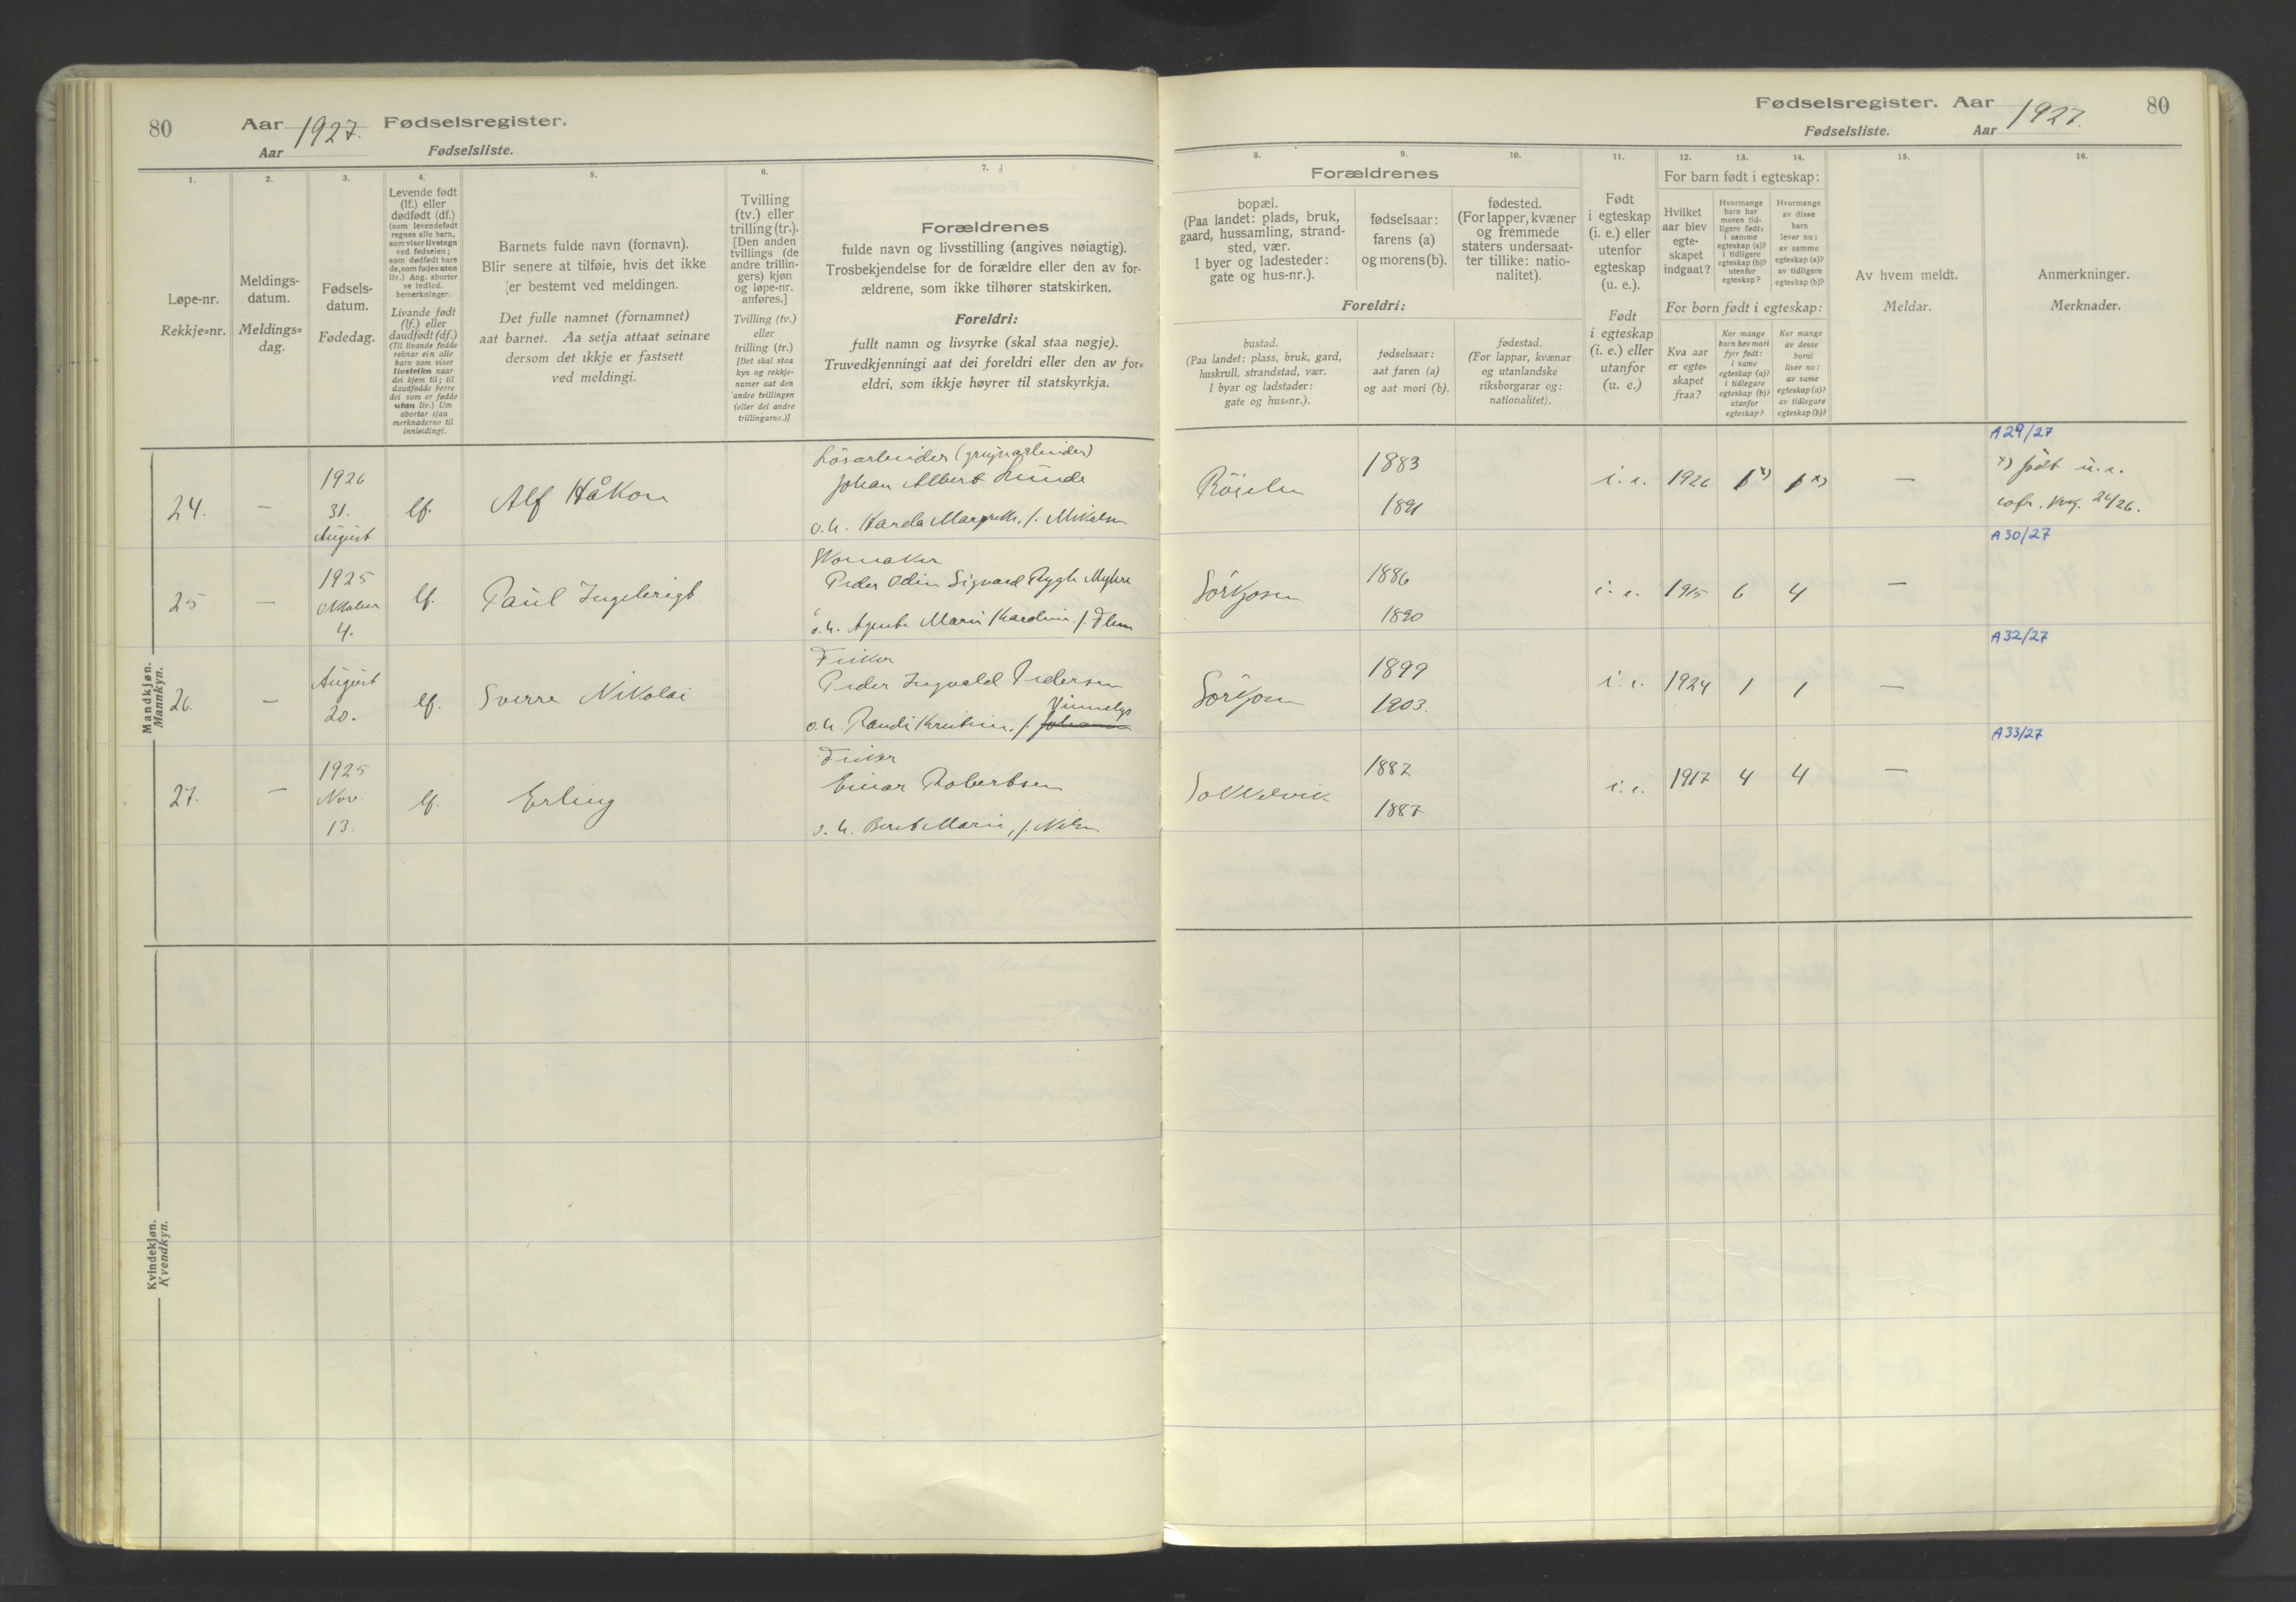 80
Aar 1927. Fødselsregister.
Aar
Fødselsliste.
1.
Løpe-nr.
Rekkje=nr.
2.
Meldings-
datum.
Meldings=
dag.
3.
Fødsels-
datum.
Fødedag.
4.
Levende født
(lf.) eller
dødfødt (df.)
(som levendefødt
regnes alle barn,
som viser livstegn
ved fødselen;
som dødfødt bare
de, som fødes uten
liv.) Ang. aborter
se indled.
bemerkninger.
Livande født
(lf.) eller
daudfødt (df.)
(Til livande fødde
reknar ein alle
barn som viser
livsteikn naar
dei kjem til; til
daudfødde berre
dei som er fødde
utan liv.) Um
abortar sjaa
merknaderne til
innleidingi.
5.
Barnets fulde navn (fornavn).
Blir senere at tilføie, hvis det ikke
er bestemt ved meldingen.
Det fulle namnet (fornamnet)
aat barnet. Aa setja attaat seinare
dersom det ikkje er fastsett
ved meldingi.
6.
Tvilling
(tv.) eller
trilling (tr.).
[Den anden
tvillings (de
andre trillin-
gers) kjøn
og løpe-nr.
anføres.]
Tvilling (tv.)
eller
trilling (tr.)
[Det skal staa
kyn og rekkje-
numer aat den
andre tvillingen
(eller dei andre
trillingarne.)]
7.
Forældrenes
fulde navn og livsstilling (angives nøiagtig).
Trosbekjendelse for de forældre eller den av for-
ældrene, som ikke tilhører statskirken.
Foreldri:
fullt namn og livsyrke (skal staa nøgje).
Truvedkjenningi aat dei foreldri eller den av for=
eldri, som ikkje høyrer til statskyrkja.
Mandkjøn.
Mannkyn.
24.
—
1926
31.
August
lf.
Alf Håkon
Løsarbeider (gruvearbeider)
Johan Albert Lunde
o. h.
25
—
1925
Oktober
4.
lf.
Paul Ingebrigt
Skomaker
Peder Odin Sigvard Rygh Myhre
o. h. Marie Karoline f.
26.
—
August
20.
lf.
Sverre Nikolai
Fisker
Peder Ingvald Pedersen
o. h. Randi Kristine, f.
27.
—
1925
Nov.
13.
lf.
Erling
Fisker
Einar Robertsen
o. h. Berit Marie, f. Nilsen
Kvindekjøn.
Kvendkyn.
Fødselsregister. Aar 1927.
80
Fødselsliste.
Aar
8.
Forældrenes
bopæl.
(Paa landet: plads, bruk,
gaard, hussamling, strand-
sted, vær.
I byer og ladesteder:
gate og hus-nr.).
Foreldri:
bustad.
(Paa landet: plass, bruk, gard,
huskrull, strandstad, vær.
I byar og ladstader:
gate og hus=nr.).
9.
fødselsaar:
farens (a)
og morens (b).
fødselsaar:
aat faren (a)
og aat mori (b).
10.
fødested.
(For lapper, kvæner
og fremmede
staters undersaat-
ter tillike: natio-
nalitet).
fødestad.
(For lappar, kvænar
og utanlandske
riksborgarar og:
nationalitet).
11.
Født
i egteskap
(i. e.) eller
utenfor
egteskap
(u. e.).
Født
i egteskap
(i. e.) eller
utanfor
(u. e.)
12.
For barn født i egteskap:
Hvilket
aar blev
egte-
skapet
indgaat?
For born født i egteskap:
Kva aar
er egte=
skapet
fraa?
13.
Hvormange
barn har
moren tid-
ligere født:
i samme
egteskap (a)?
i tidligere
egteskap (b)?
utenfor
egteskap?
Kor mange
born hev mori
fyrr født:
i same
egteskap (a)?
i tidlegare
egteskap (b)?
utanfor
egteskap?
14.
Hvormange
av disse
barn
lever nu:
av samme
egteskap (a)?
av tidligere
egteskap (b)?
Kor mange
av desse
borni
liver no:
av same
egteskap (a)?
av tidlegare
egteskap (b)?
15.
Av hvem meldt.
Meldar.
16.
Anmerkninger.
Merknader.
1883
1891
i. e.
1926
1 x)
1 x)
—
A 29/27
x) født u. e.
24/26.
Sørkjosen
1886
1890
i. e.
1915
6
4
—
A 30/27
Sørkjosen
1899
1903.
i. e.
1924
1
1
—
A 32/27
Sokkelvik
1882
1887
i. e.
1917
4
4
—
A 33/27